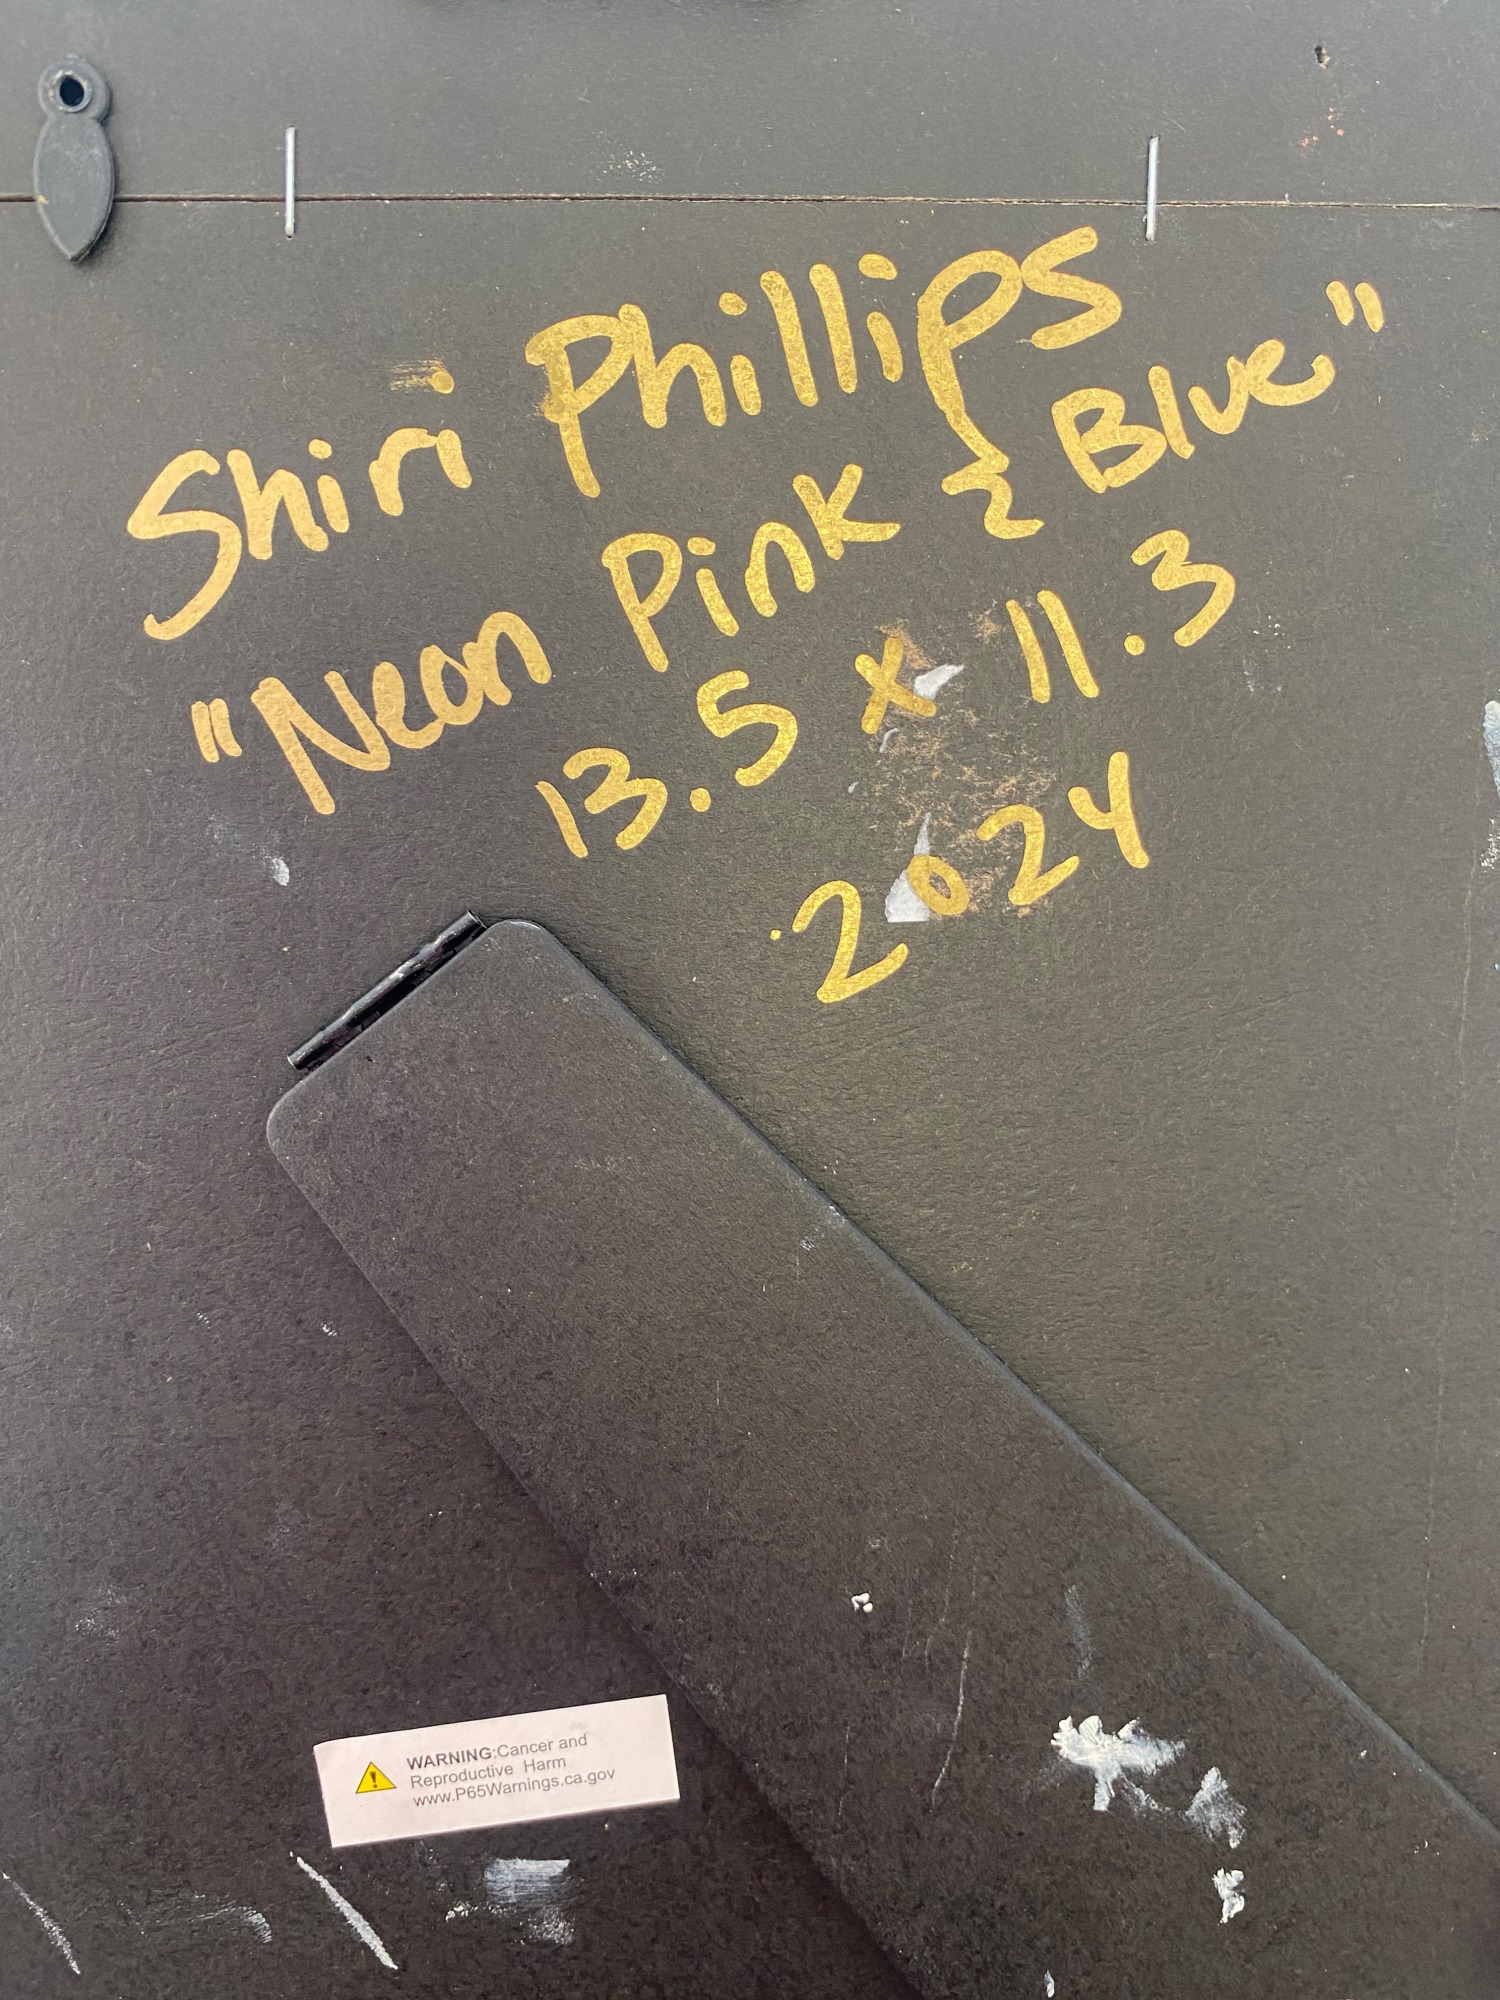 Shiri Phillips
"Neon Pink & Blue"
13.5 x 11.3
2024
WARNING:Cancer and
Reproductive Harm
www.P65Warnings.ca.gov